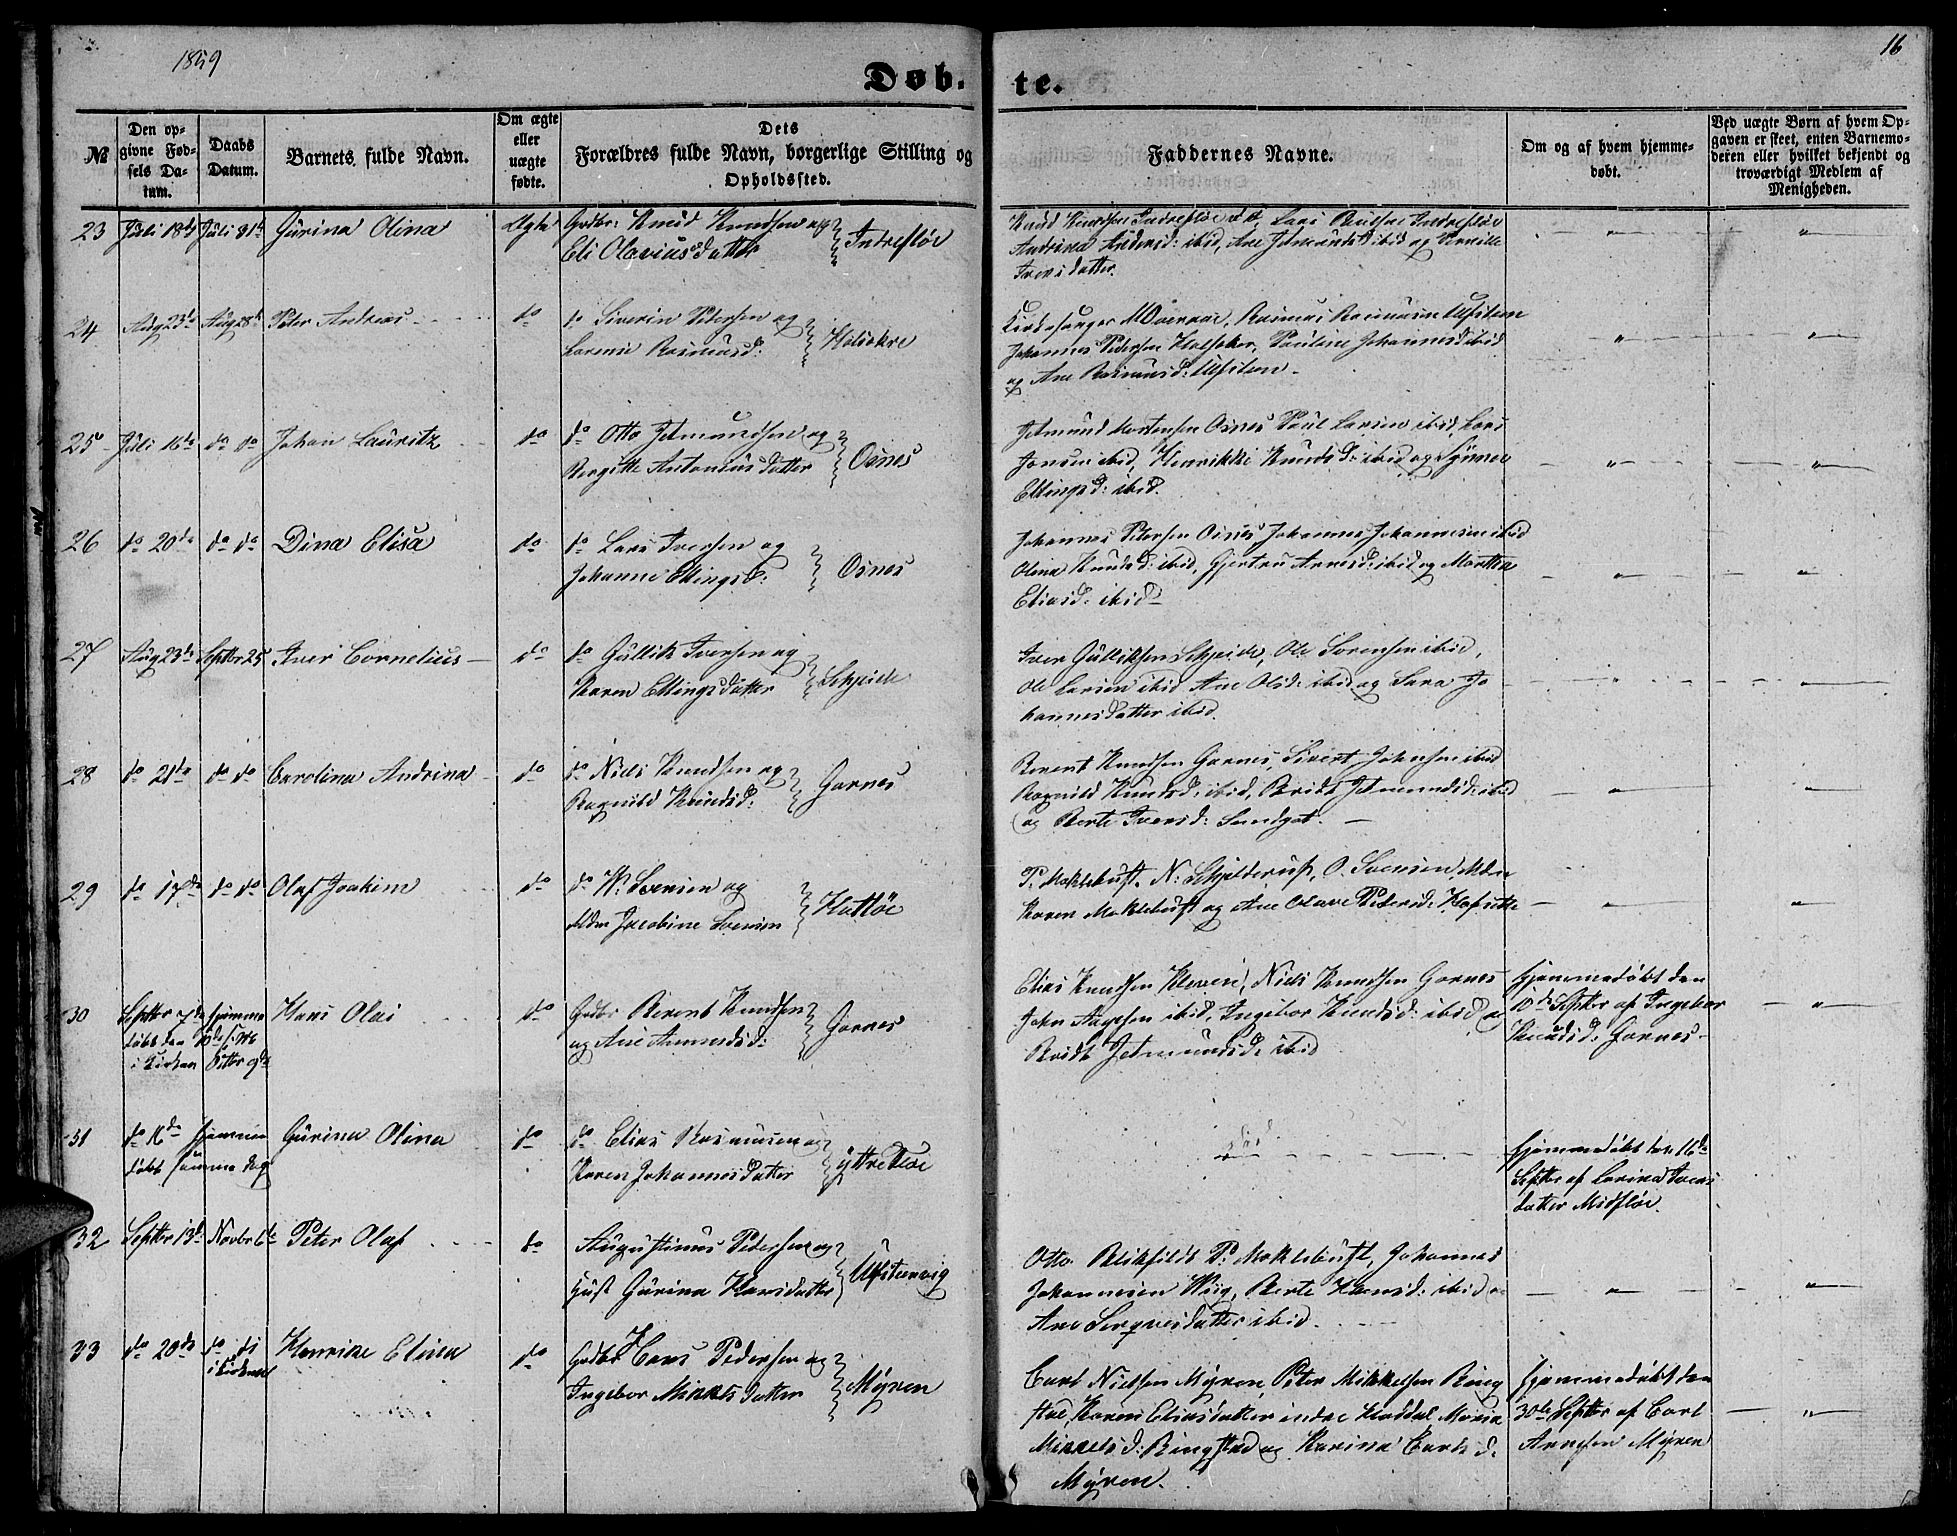 1859
16
Døb-
te.
№
Den op-
givne Fød-
sels Da-
tum.
Daabs
Datum.
Barnets fulde Navn.
Om ægte
eller
uægte
fødte.
Dets
Forældres fulde Navn, borgerlige Stilling og
Opholdssted.
Faddernes Navne.
Om og af hvem hjemme-
døbt.
Ved uægte Børn af hvem Op-
gaven er skeet, enten Barnemo-
deren eller hvilket bekjendt og
troværdigt Medlem af
Menigheden.
23 Juli 18de Juli 31te Gurina Olina Ægte Gdbr: Knud Knudsen og
Eli Olaviusdatter Indrefløe
Knud Knudsen Indrefløe Lars Indrefløe
Andrina Andersd: ibid, Ane Jetmundsd ibid og Pernille
Iversdatter.
24 Aug 23de Aug 28de Peter Andreas do do Siverin Petersen og
Lorense Rasmusd: Holsøkre
Kirkesanger Rasmus Rasmusen Ulfsteen
Johannes Pedersen Pauline Johannesd ibid
og Ane Rasmusd: Ulfsteen
25 Juli 16de do do Johan Lauritz do do Otto Jetmundsen og
Birgitte Antoniusdatter Osnes
Jetmund Mortensen Osnes Paul Larsen ibid, Lars
Jonsen ibid, Henrikke Knudsd: ibid og Synnev
Ellingsd: ibid.
26 do 20de do do Dina Elisa do do Lars Iversen og
Johanne Ellingsd: Osnes
Johannes Petersen Osnes, Johannes Johannesen ibid
Olina Knudsd: ibid, Gjertru Arnesd: ibid og Marthe
Eliasd: ibid
27 Aug 23de Septbr 25 Iver Cornelius do do Gullik Iversen og
Karen Ellingsdatter Schjeide
Iver Gulliksen Schjeide, Ole Sørensen ibid,
Ole Larsen ibid Ane Olsd: ibid og Sara Jo
hannesdatter ibid.
28 do 21de do do Carolina Andrina do do Niels Knudsen og
Ragnild Knudsd: Garnes
Berent Knudsen Garnes, Sivert Johnsen ibid
Ragnild Knudsd: ibid, Bridt Jetmundsd: ibid
og Berte Iversd: Sundgot.
29 do 17de do do Olaf Joakim do do W. Svensen og
Jacobine Svensen Hatløe
P. Moklebust. N. Schjelderup, O. Svensen,
Karen Moklebust og Ane Olave Pedersd:
30 Septbr 7de hjemme Hans Olai do Gdbr Berent Knudsen
døbt den 10de
i Kirken Octbr 9de
og Ane Amundsd: Garnes
Elias Knudsen Niels Knudsen Garnes
John ibid, Ingebor Knudsd: ibid og
Bridt Jetmundsd: ibid
hjemmedøbt den
10de Septbr af Ingebor
Knudsd: Garnes
31 do 16de hjemme Gurina Olina do do Elias Rasmusen og
døbt samme dag
Karen Johannesdatter Yttrefløe
død
hjemmedøbt den 16de
Septbr af Ivers
datter Midfløe.
32 Septbr 13de Novbr 6te Peter Olaf do Augustinus Pedersen og
Hust Gurina Hansdatter Ulfsteenvig
Otto P. Moklebust, Johannes
Johannesen Wiig, Berte Hansd: ibid og
Ane ibid.
33 do 20de do do Henrikke Elina do Gdbr Hans Pedersen og
i Kirken
Ingebor Mikkelsdatter Myren
Carl Nielsen Myren, Peter Mikkelsen Ring
stad, Karen Eliasdatter indre Haddal, Maria
Mikkelsd: Ringstad og Karina Carlsd.
Myren.
hjemmedøbt den
30te Septbr af Carl
Arnesen Myren